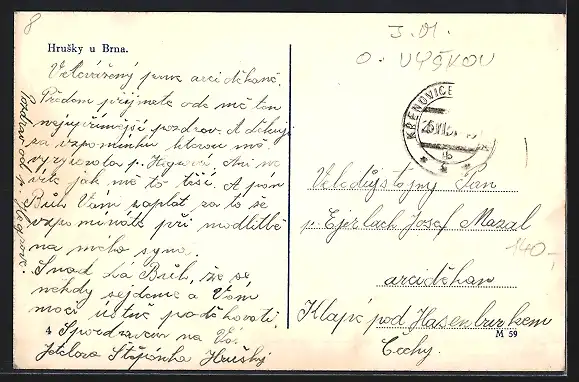 8
J.M.
O. VYŠKOV
Hrušky u Brna.
Velevážený pane arciděkane.
Předem přijmete ode mě ten
nejupřímnější pozdrav. A děkuji
za vzpomínku kterou mě
vyřizovala p. Hegrová. Ani ne
víte jak mě to těší. A pán
Bůh Vám zaplat za to že
vzpomínáte při modlitbě
na meho syna.
Snad da Bůh, že se
nekdy sejdeme a Vám
moci ustne poděkovati.
S pozdravem na Vás
Jetelova Štěpanka Hrušky
Pozdrav od p. Hegrové.
KŘENOVICE
Veledůstojný Pan
p. Josef Masal
140,-
arciděkan
Klapé pod Hasenburkem
M 59
Čechy.